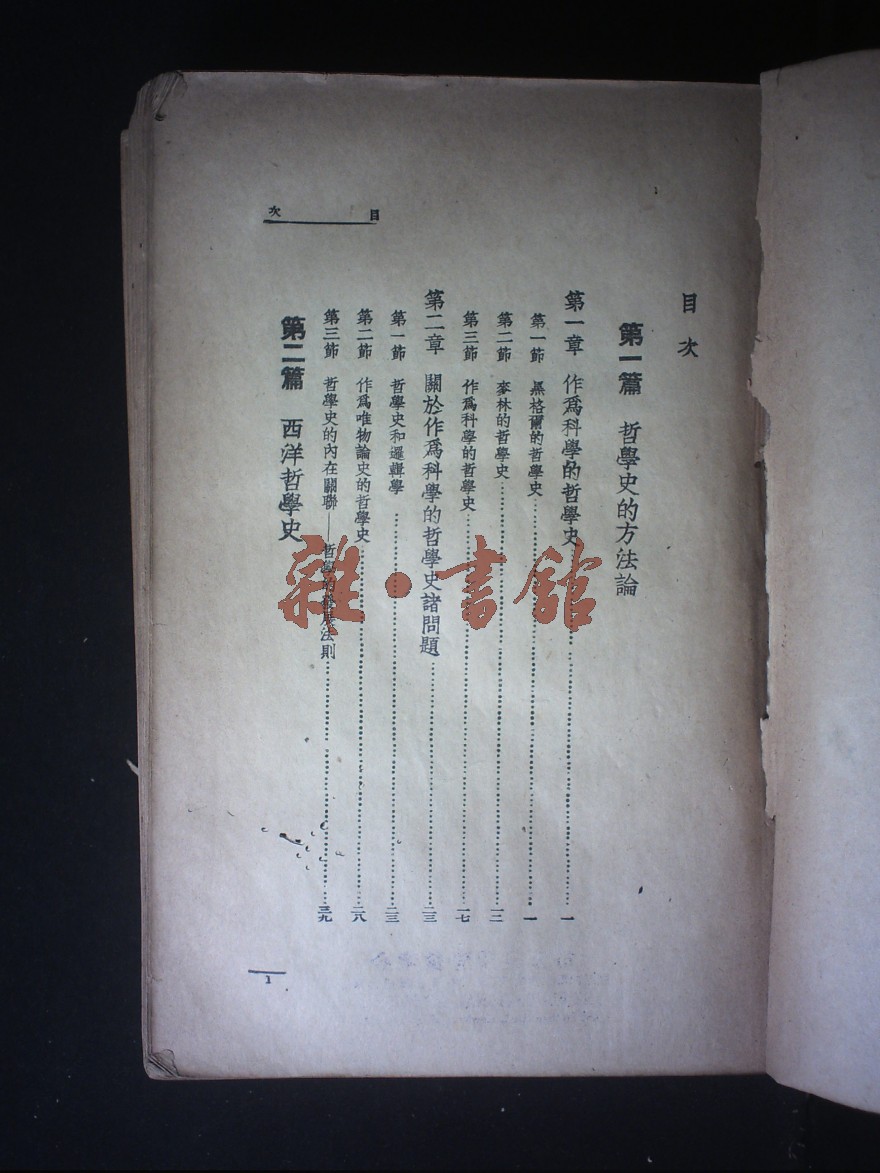 目次
目次
第一篇 哲學史的方法論
第一章 作爲科學的哲學史……一
第一節 黑格爾的哲學史……一
第二節 麥林的哲學史……一二
第三節 作爲科學的哲學史……一七
第二章 關於作爲科學的哲學史諸問題……二三
第一節 哲學史和邏輯學……二三
第二節 作爲唯物論史的哲學史……二八
第三節 哲學史的內在關聯——哲學的發展法則……三九
第二篇 西洋哲學史
1
雜·書館